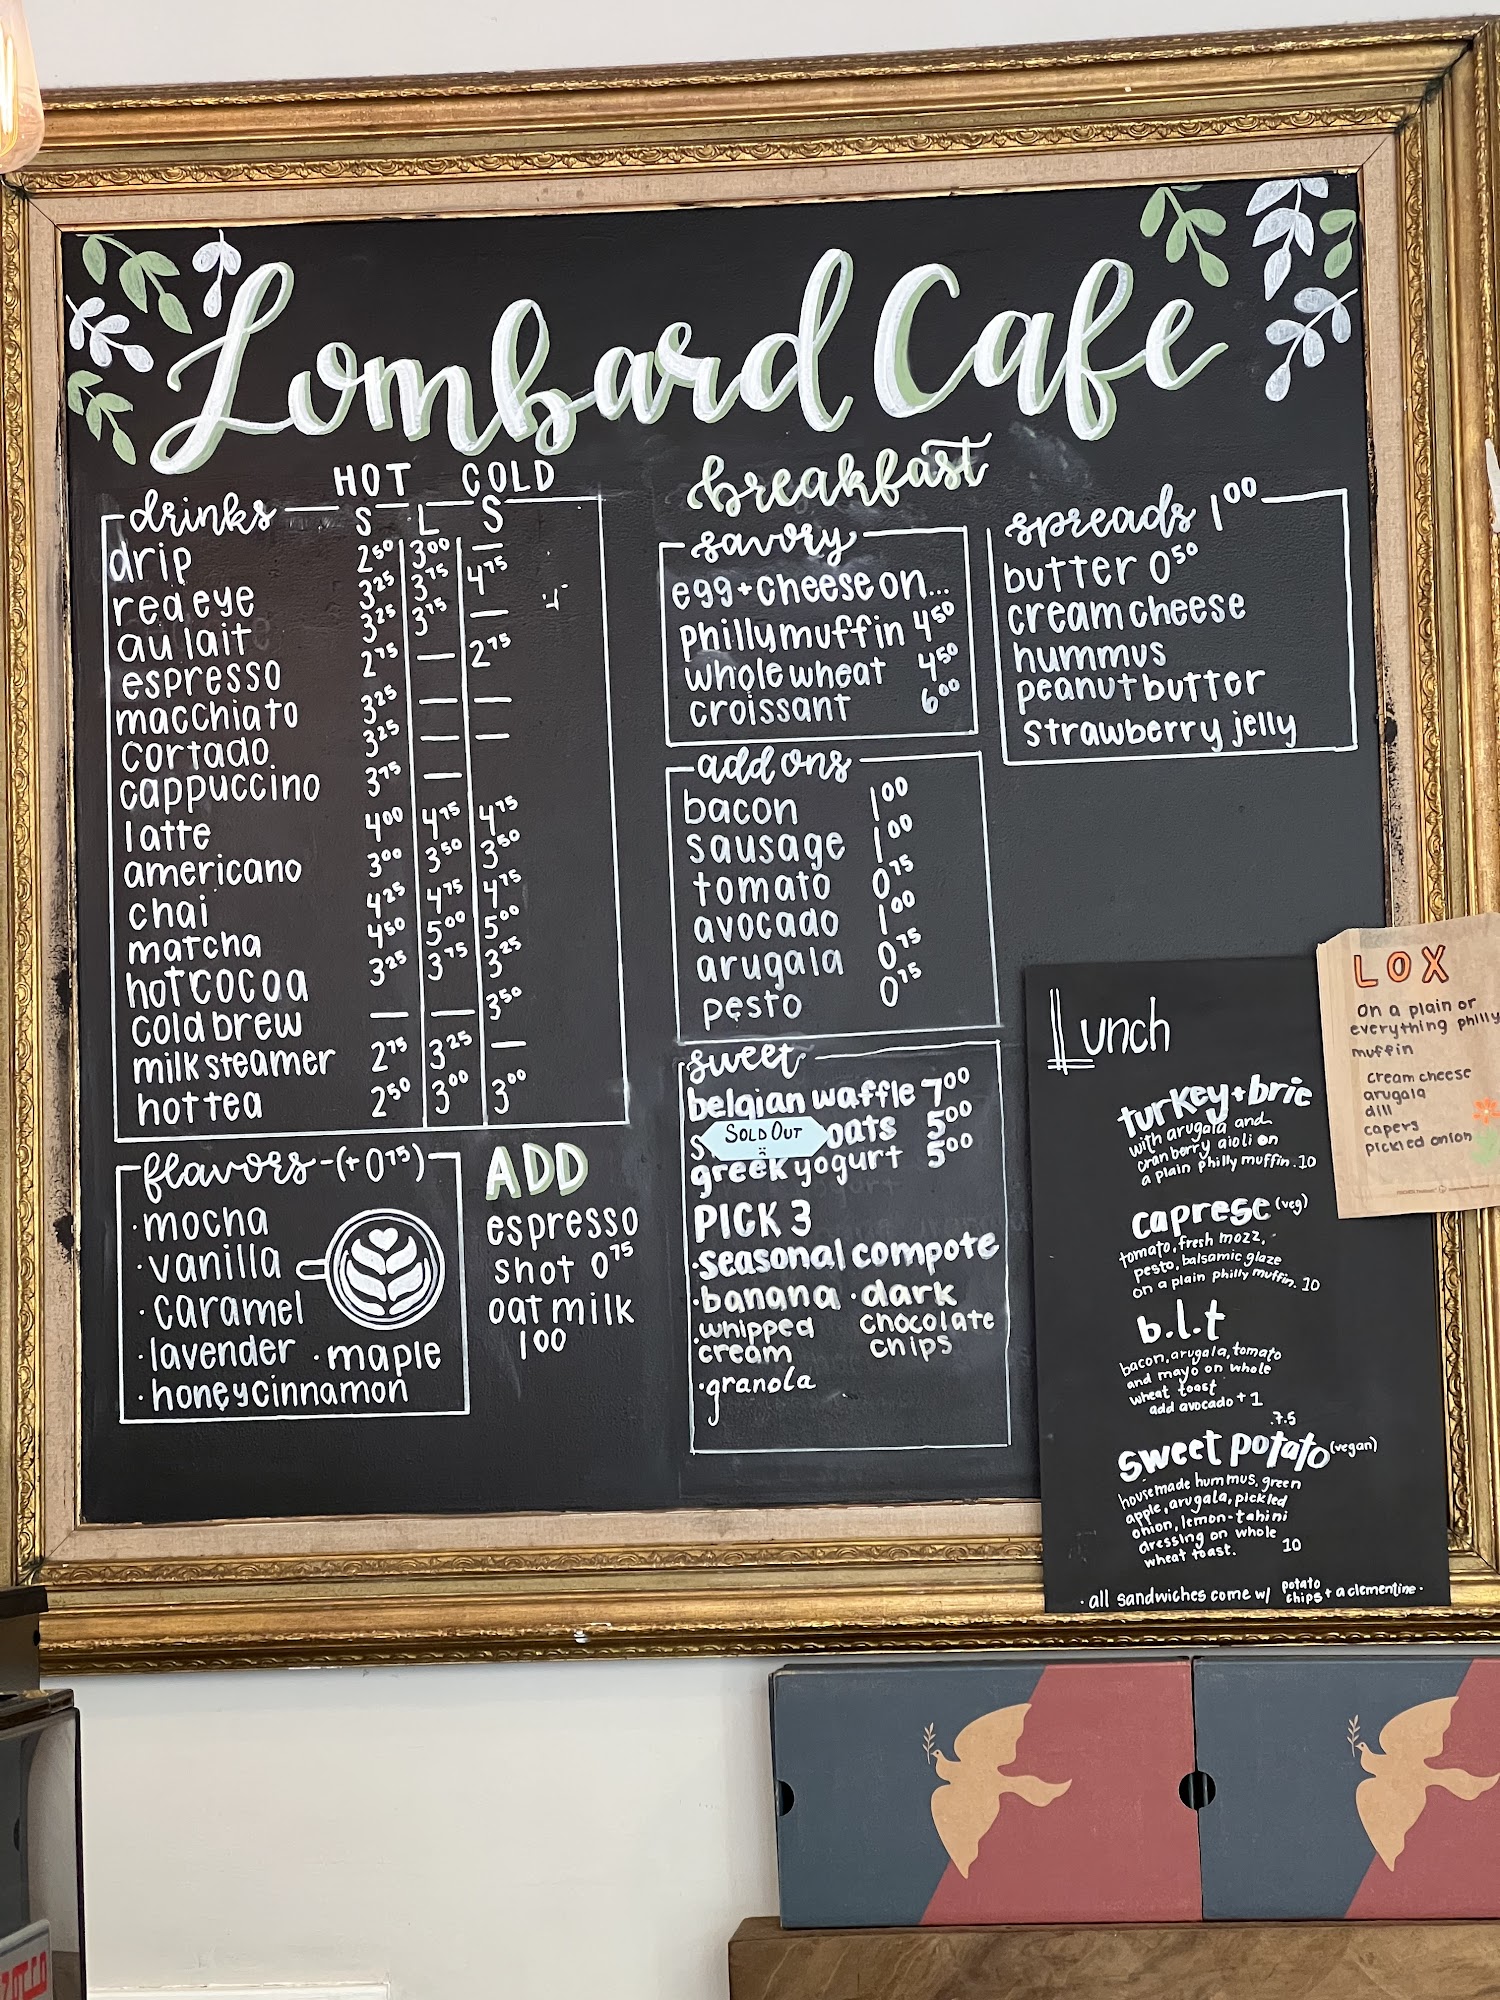 Lombard Cafe
HOT COLD
drinks S L S
drip 2⁵⁰ 3⁰⁰ —
red eye 3²⁵ 3⁷⁵ 4⁷⁵
au lait 3²⁵ 3⁷⁵ —
espresso 2⁷⁵ — 2⁷⁵
macchiato 3²⁵ — —
cortado 3²⁵ — —
cappuccino 3⁷⁵ —
latte 4⁰⁰ 4⁷⁵ 4⁷⁵
americano 3⁰⁰ 3⁵⁰ 3⁵⁰
chai 4²⁵ 4⁷⁵ 4⁷⁵
matcha 4⁵⁰ 5⁰⁰ 5⁰⁰
hot cocoa 3²⁵ 3⁷⁵ 3²⁵
cold brew — — 3⁵⁰
milk steamer 2⁷⁵ 3²⁵ —
hot tea 2⁵⁰ 3⁰⁰ 3⁰⁰
flavors - (+0⁷⁵)
· mocha
· vanilla
· caramel
· lavender · maple
· honey cinnamon
ADD
espresso
shot 0⁷⁵
oat milk
1⁰⁰
breakfast
savory
egg + cheese on...
philly muffin 4⁵⁰
whole wheat 4⁵⁰
croissant 6⁰⁰
add ons
bacon 1⁰⁰
sausage 1⁰⁰
tomato 0⁷⁵
avocado 1⁰⁰
arugala 0⁷⁵
pesto 0⁷⁵
sweet
belgian waffle 7⁰⁰
SOLD OUT oats 5⁰⁰
greek yogurt 5⁰⁰
PICK 3
· seasonal compote
· banana · dark
· whipped chocolate
cream chips
· granola
spreads 1⁰⁰
butter 0⁵⁰
cream cheese
hummus
peanut butter
strawberry jelly
Lunch
turkey + brie
with arugala and
cranberry aioli on
a plain philly muffin. 10
caprese (veg)
tomato, fresh mozz,
pesto, balsamic glaze
on a plain philly muffin. 10
b.l.t
bacon, arugala, tomato
and mayo on whole
wheat toast
add avocado + 1
.7.5
sweet potato (vegan)
housemade hummus, green
apple, arugala, pickled
onion, lemon-tahini
dressing on whole
wheat toast. 10
· all sandwiches come w/ potato chips + a clementine ·
LOX
On a plain or
everything philly
muffin
cream cheese
arugala
dill
capers
pickled onion